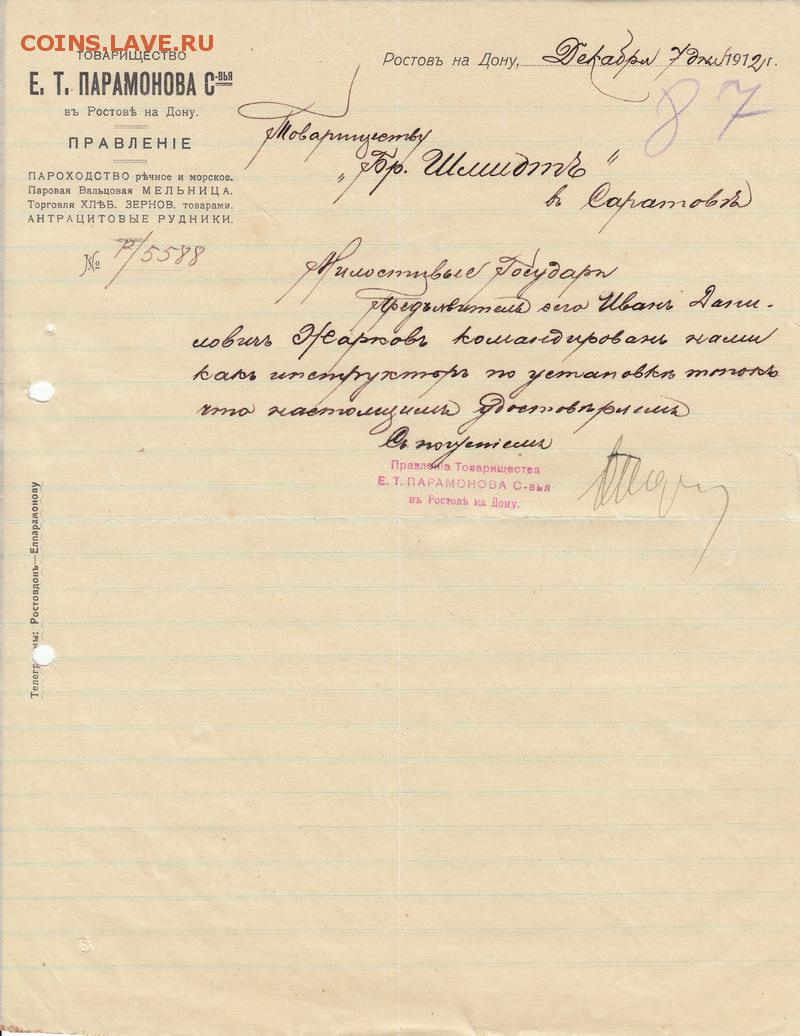 COINS.LAVE.RU
ТОВАРИЩЕСТВО
Е. Т. ПАРАМОНОВА С-ВЬЯ
въ Ростовѣ на Дону.
ПРАВЛЕНІЕ
ПАРОХОДСТВО рѣчное и морское.
Паровая Вальцовая МЕЛЬНИЦА.
Торговля ХЛѢБ. ЗЕРНОВ. товарами.
АНТРАЦИТОВЫЕ РУДНИКИ.
№ /5588
Ростовъ на Дону, Декабря 7 дня 1912 г.
87
Товариществу
„Бр. Шмидтъ"
въ Саратовѣ
Милостивые Государи
Предъявитель сего Иванъ Дани-
ловичъ Жарковъ командированъ нами
какъ инструкторъ по установкѣ топокъ
что настоящимъ удостовѣряемъ
Съ почтеніемъ
Правленіе Товарищества
Е. Т. ПАРАМОНОВА С-вья
въ Ростовѣ на Дону.
Телеграммы: Ростовдонъ—Елпарамонову